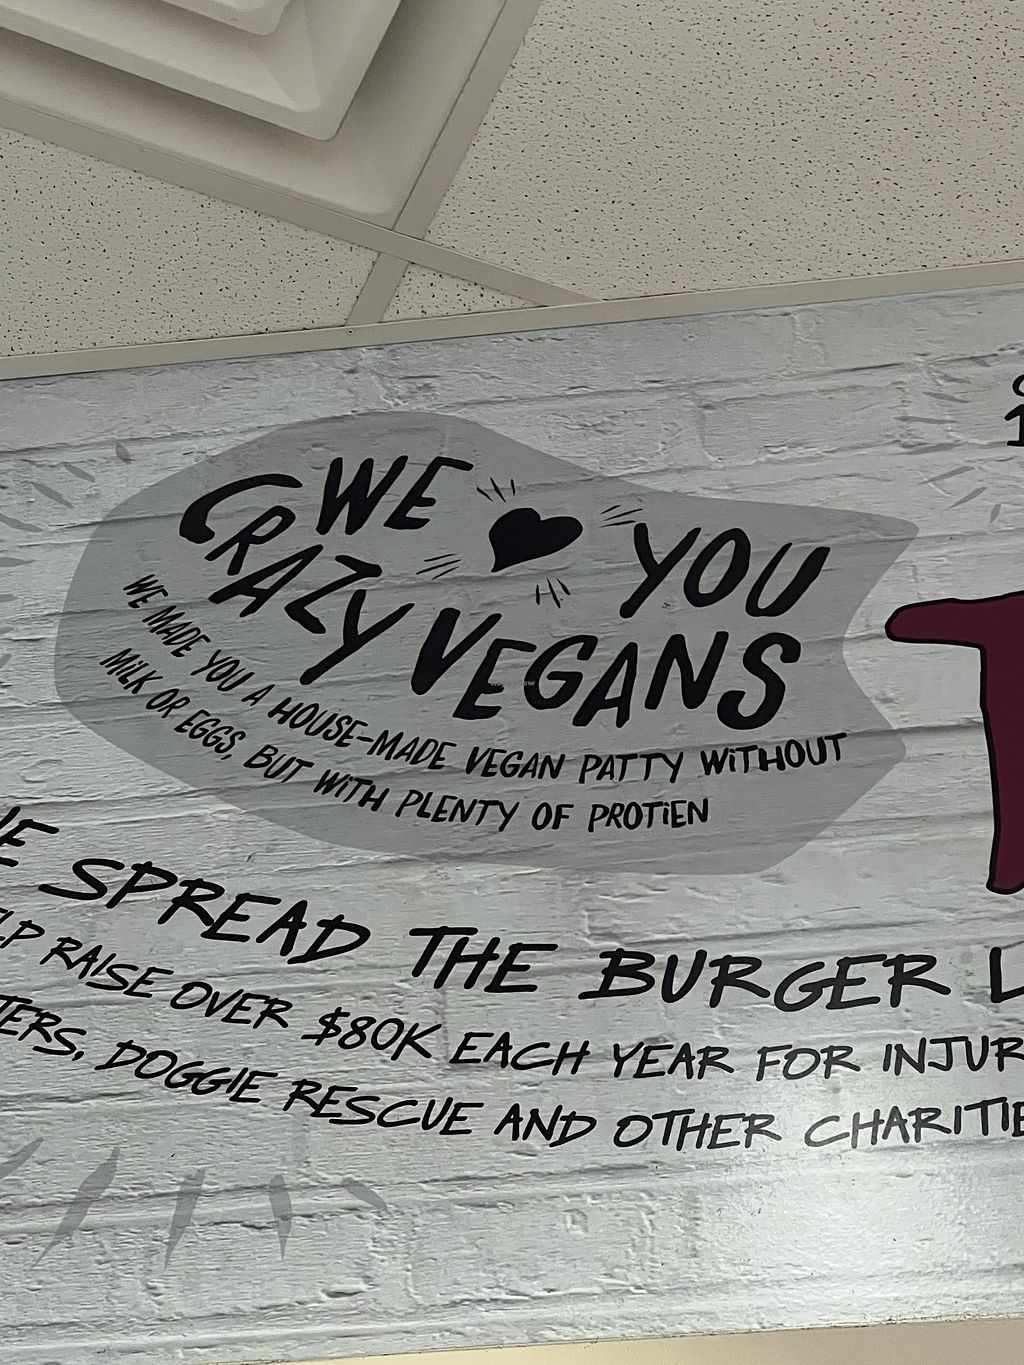 WE ♥ YOU
CRAZY VEGANS
WE MADE YOU A HOUSE-MADE VEGAN PATTY WiTHOUT
MiLK OR EGGS, BUT WiTH PLENTY OF PROTiEN
SPREAD THE BURGER
RAISE OVER $80K EACH YEAR FOR INJUR
DOGGIE RESCUE AND OTHER CHARITIE